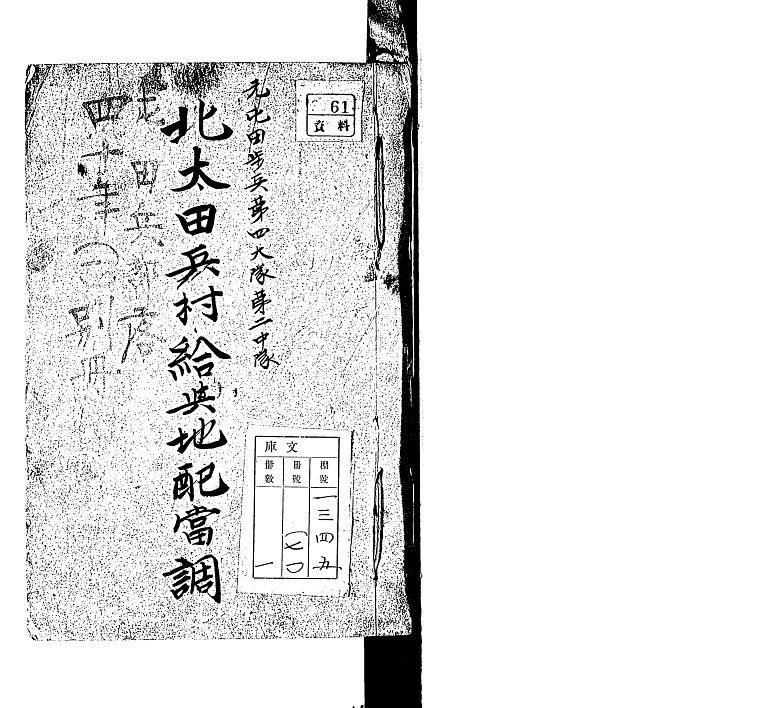 61
資料
元屯田歩兵第四大隊第二中隊
北太田兵村給與地配當調
四十年
別冊
文庫
棚號
一三四五
冊號
(七〇
冊數
一